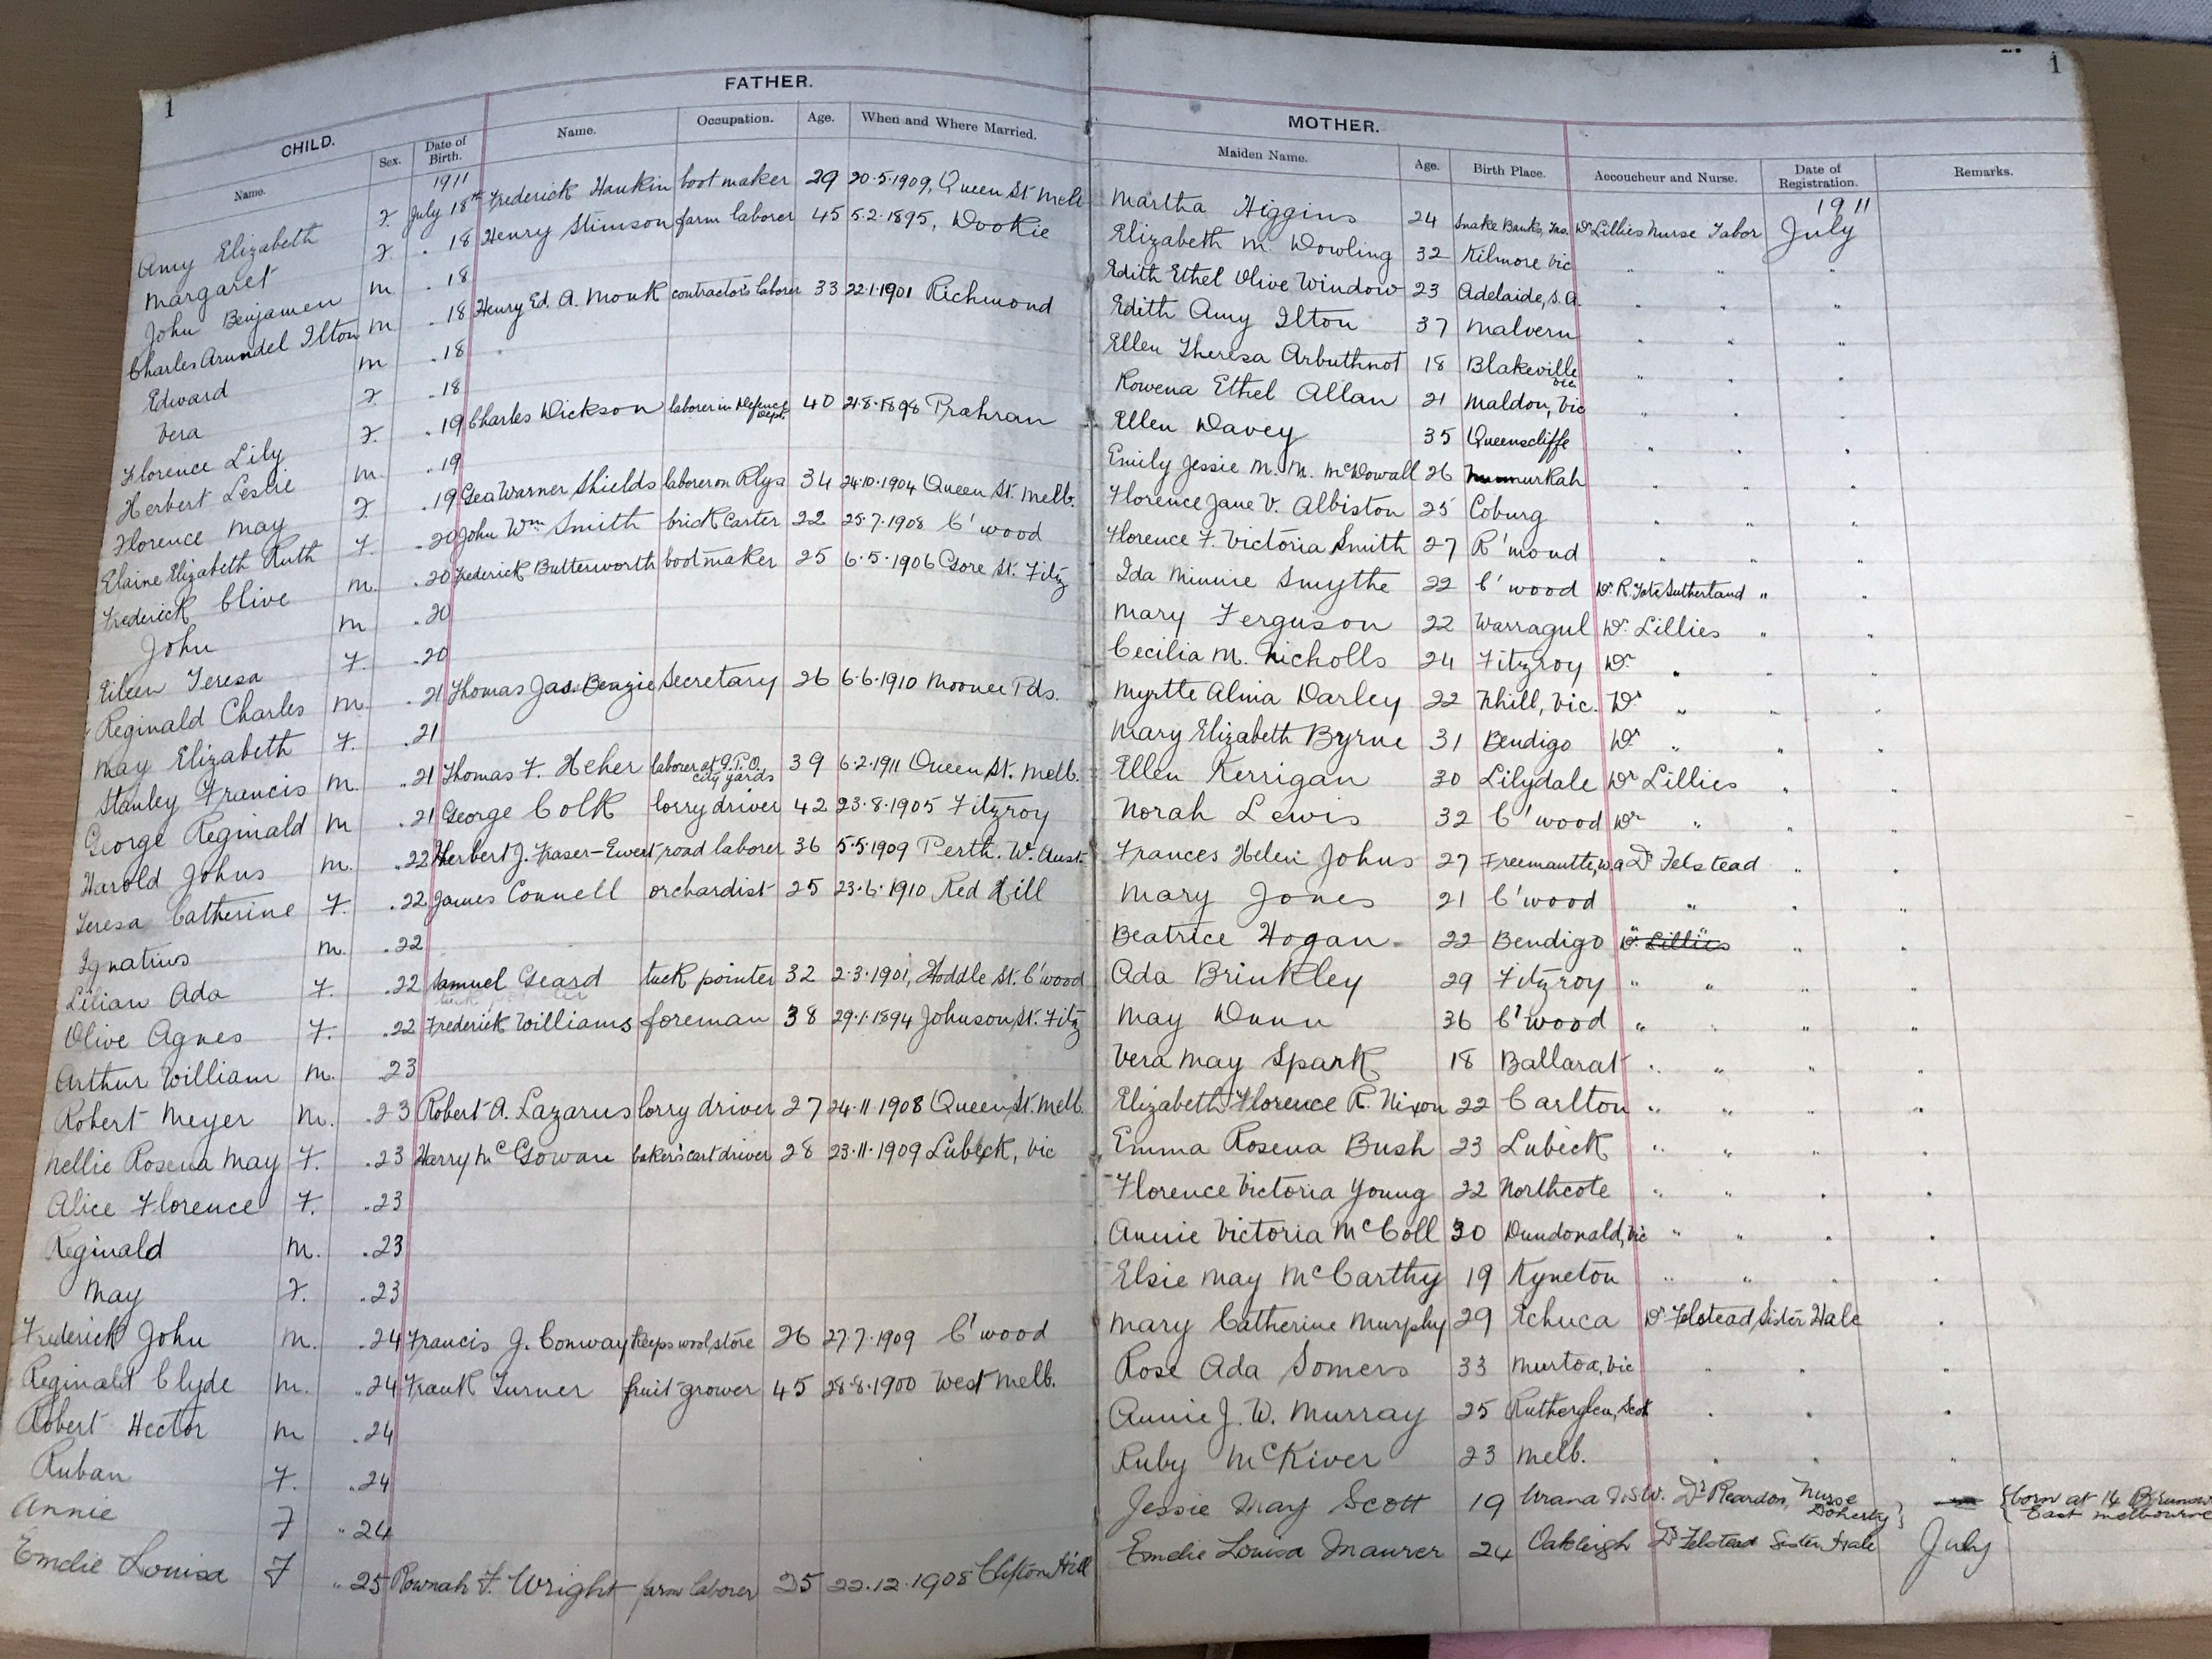 1
1
FATHER.
CHILD.
MOTHER.
Name. Sex. Date of Birth. Name. Occupation. Age. When and Where Married. Maiden Name. Age. Birth Place. Accoucheur and Nurse. Date of Registration. Remarks.
1911 1911
Amy Elizabeth F. July 18th Frederick Hankin boot maker 29 20.5.1909, Queen St Melb Martha Higgins 24 Snake Banks, Tas. Dr Lillies Nurse Tabor July
Margaret F. " 18 Henry Stimson farm laborer 45 5.2.1895, Dookie Elizabeth M. Dowling 32 Kilmore Vic " " "
John Benjamen m . 18 Edith Ethel Olive Window 23 Adelaide, S.A. " " "
Charles Arundel Ilton m. . 18 Henry Ed. A. Monk contractor's laborer 33 22.1.1901 Richmond Edith Amy Ilton 37 Malvern " " "
Edward m . 18 Ellen Theresa Arbuthnot 18 Blakeville Vic " " "
Vera F. . 18 Rowena Ethel Allan 21 Maldon, Vic " " "
Florence Lily F. . 19 Charles Dickson laborer in Defence Dept. 40 21.8.1898 Prahran Ellen Davey 35 Queenscliffe " " "
Herbert Leslie m. . 19 Emily Jessie M. M. McDowall 26 Numurkah " " "
Florence May F. . 19 Geo Warner Shields laborer on Rlys 34 24.10.1904 Queen St. Melb. Florence Jane V. Albiston 25 Coburg " " "
Elaine Elizabeth Ruth F. . 20 John Wm Smith brick carter 22 25.7.1908 C'wood Florence F. Victoria Smith 27 R'mond " " "
Frederick Clive m. . 20 Frederick Butterworth bootmaker 25 6.5.1906 Gore St. Fitz Ida Minnie Smythe 22 C'wood Dr. R. Fate Sutherland " "
John m . 20 Mary Ferguson 22 Warragul Dr. Lillies " "
Eileen Teresa F. . 20 Cecilia M. Nicholls 24 Fitzroy Dr " "
Reginald Charles m. . 21 Thomas Jas. Beazie Secretary 26 6.6.1910 Moonee Pds. Myrtle Alma Darley 22 Nhill, Vic. Dr " " "
May Elizabeth F. . 21 Mary Elizabeth Byrne 31 Bendigo Dr " " "
Stanley Francis m. . 21 Thomas F. Heher laborer at G.P.O. city yards 39 6.2.1911 Queen St. Melb. Ellen Kerrigan 30 Lilydale Dr Lillies " "
George Reginald m . 21 George Colk lorry driver 42 23.8.1905 Fitzroy Norah Lewis 32 C'wood Dr " " "
Harold Johns m. . 22 Herbert J. Fraser-Ewert road laborer 36 5.5.1909 Perth. W. Aust. Frances Helen Johns 27 Freemantle, W.A Dr Felstead " "
Teresa Catherine F. . 22 James Connell orchardist 25 23.6.1910 Red Hill Mary Jones 21 C'wood " " "
Ignatius m. . 22 Beatrice Hogan 22 Bendigo Dr. Lillies " "
Lilian Ada F. . 22 Samuel Geard tuck pointer 32 2.3.1901, Hoddle St. C'wood Ada Brinkley 29 Fitzroy " " " "
Olive Agnes F. . 22 Frederick Williams foreman 38 29.1.1894 Johnson St. Fitz May Dunn 36 C'wood " " " "
Arthur William m. . 23 Vera May Spark 18 Ballarat " " " "
Robert Meyer m. . 23 Robert A. Lazarus lorry driver 27 24.11.1908 Queen St. Melb. Elizabeth Florence R. Nixon 22 Carlton " " " "
Nellie Rosena May F. . 23 Harry McGowan baker's cart driver 28 23.11.1909 Lubeck, Vic Emma Rosena Bush 23 Lubeck " " " "
Alice Florence F. . 23 Florence Victoria Young 22 Northcote " " " "
Reginald m. . 23 Annie Victoria McColl 30 Dundonald, Vic " " " "
May F. . 23 Elsie May McCarthy 19 Kyneton " " " "
Frederick John m. . 24 Francis J. Conway Keeps wool store 26 27.7.1909 C'wood Mary Catherine Murphy 29 Echuca Dr Felstead, Sister Hale "
Reginald Clyde m. . 24 Frank Turner fruit-grower 45 28.8.1900 West Melb. Rose Ada Somers 33 Murtoa, Vic " " "
Robert Hector m . 24 Annie J. W. Murray 25 Rutherglen, Scot " " "
Ruban F. . 24 Ruby McKiver 23 Melb. " " "
Annie F " 24 Jessie May Scott 19 Urana N.S.W. Dr Reardon, Nurse Doherty {born at 14
East Melbourne
Emelie Louisa F " 25 Rownah F. Wright farm laborer 25 22.12.1908 Clifton Hill Emelie Louisa Maurer 24 Oakleigh Dr Felstead Sister Hale July